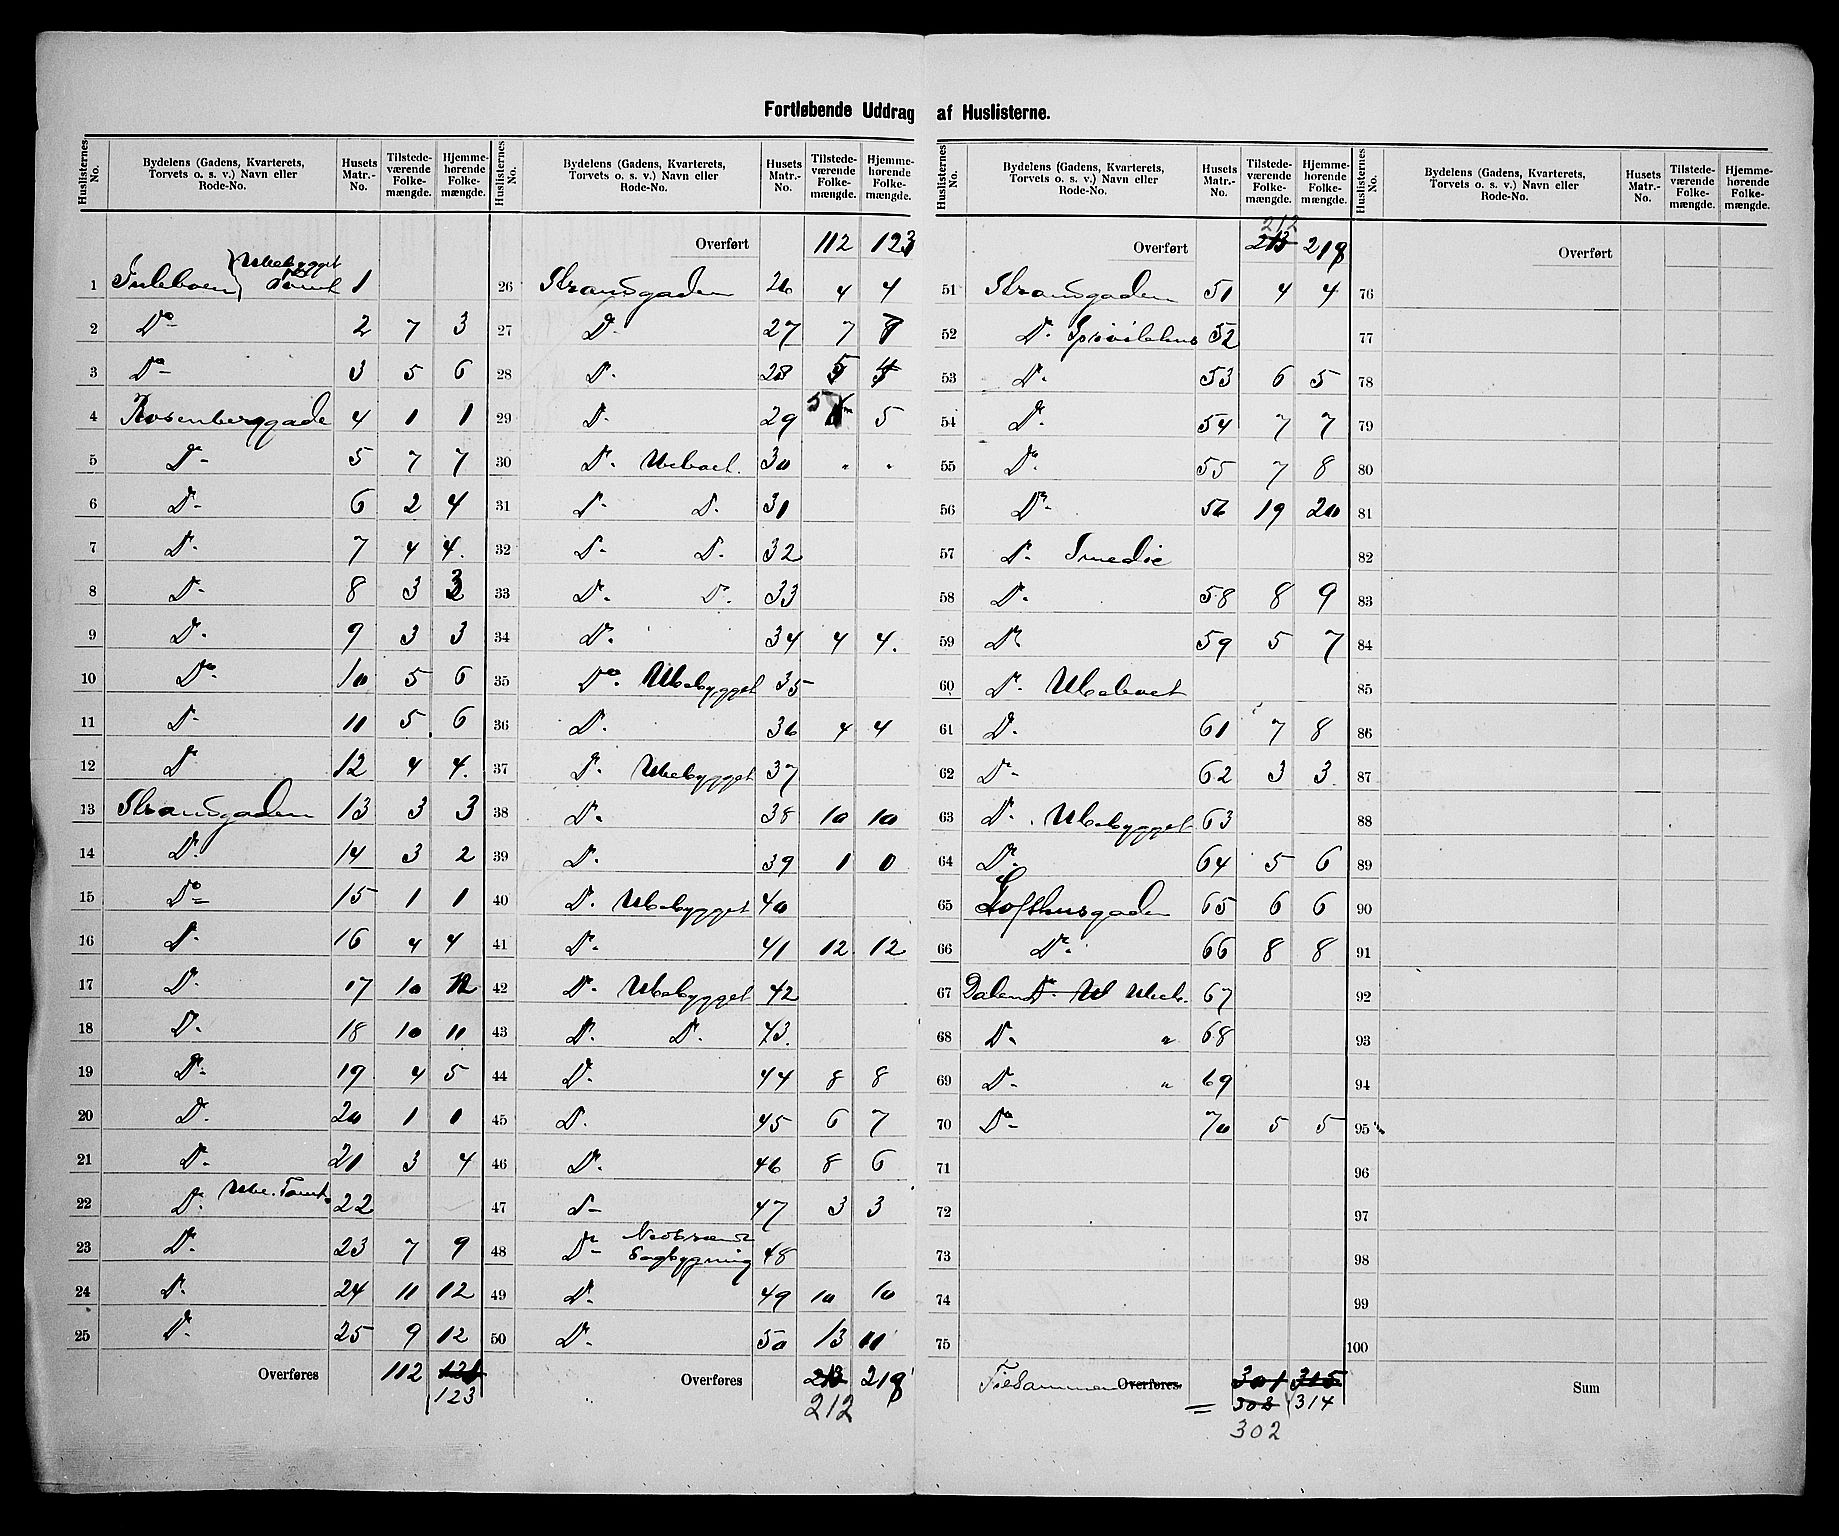 Fortløbende Uddrag af Huslisterne.
Huslisternes No. | Bydelens (Gadens, Kvarterets, Torvets o. s. v.) Navn eller Rode-No. | Husets Matr.-No. | Tilstedeværende Folkemængde. | Hjemmehørende Folkemængde.
1 Ubebygget Tomt 1
2 Do 2 7 3
3 Do 3 5 6
4 Rosenberggade 4 1 1
5 Do 5 7 7
6 Do 6 2 4
7 Do 7 4 4.
8 Do 8 3 3
9 Do 9 3 3
10 Do 10 5 6
11 Do 11 5 6
12 Do 12 4 4.
13 Strandgaden 13 3 3
14 Do 14 3 2
15 Do 15 1 1
16 Do 16 4 4
17 Do 17 10 12
18 Do 18 10 11
19 Do 19 4 5
20 Do 20 1 1
21 Do 21 3 4
22 Do Ube. Tomt 22
23 Do 23 7 9
24 Do 24 11 12
25 Do 25 9 12
Overføres 112 121
123
Huslisternes No. | Bydelens (Gadens, Kvarterets, Torvets o. s. v.) Navn eller Rode-No. | Husets Matr.-No. | Tilstedeværende Folkemængde. | Hjemmehørende Folkemængde.
Overført 112 123
26 Strandgaden 26 4 4
27 Do 27 7 7
28 Do 28 5
29 Do 29 5 5
30 Do Ubeboet. 30 " "
31 Do Do 31
32 Do Do 32
33 Do Do 33
34 Do 34 4 4.
35 Do Ubebygget 35
36 Do 36 4 4
37 Do Ubebygget 37
38 Do 38 10 10
39 Do 39 1 0
40 Do Ubebygget 40
41 Do 41 12 12
42 Do Ubebygget 42
43 Do Do 43.
44 Do 44 8 8
45 Do 45 6 7
46 Do 46 8 6
47 Do 47 3 3
48 Do Nedbrændt
Sagbygning 48
49 Do 49 10 10
50 Do 50 13 11
Overføres 213 218
212
Huslisternes No. | Bydelens (Gadens, Kvarterets, Torvets o. s. v.) Navn eller Rode-No. | Husets Matr.-No. | Tilstedeværende Folkemængde. | Hjemmehørende Folkemængde.
212
Overført 213 218
51 Strandgaden 51 4 4
52 Do 52
53 Do 53 6 5
54 Do 54 7 7
55 Do 55 7 8
56 Do 56 19 20
57 Do Smedie
58 Do 58 8 9
59 Do 59 5 7
60 Do Ubeboet
61 Do 61 7 8
62 Do 62 3 3.
63 Do Ubebygget 63
64 Do 64 5 6
65 Lofthusgaden 65 6 6
66 Do 66 8 8
67 Dalen Do U Ubeb. 67
68 Do " 68
69 Do " 69
70 Do 70 5 5
71
72
73
74
75
Tilsammen Overføres 301 315
= 303 314
302
Huslisternes No. | Bydelens (Gadens, Kvarterets, Torvets o. s. v.) Navn eller Rode-No. | Husets Matr.-No. | Tilstedeværende Folkemængde. | Hjemmehørende Folkemængde.
Overført
76
77
78
79
80
81
82
83
84
85
86
87
88
89
90
91
92
93
94
95
96
97
98
99
100
Sum